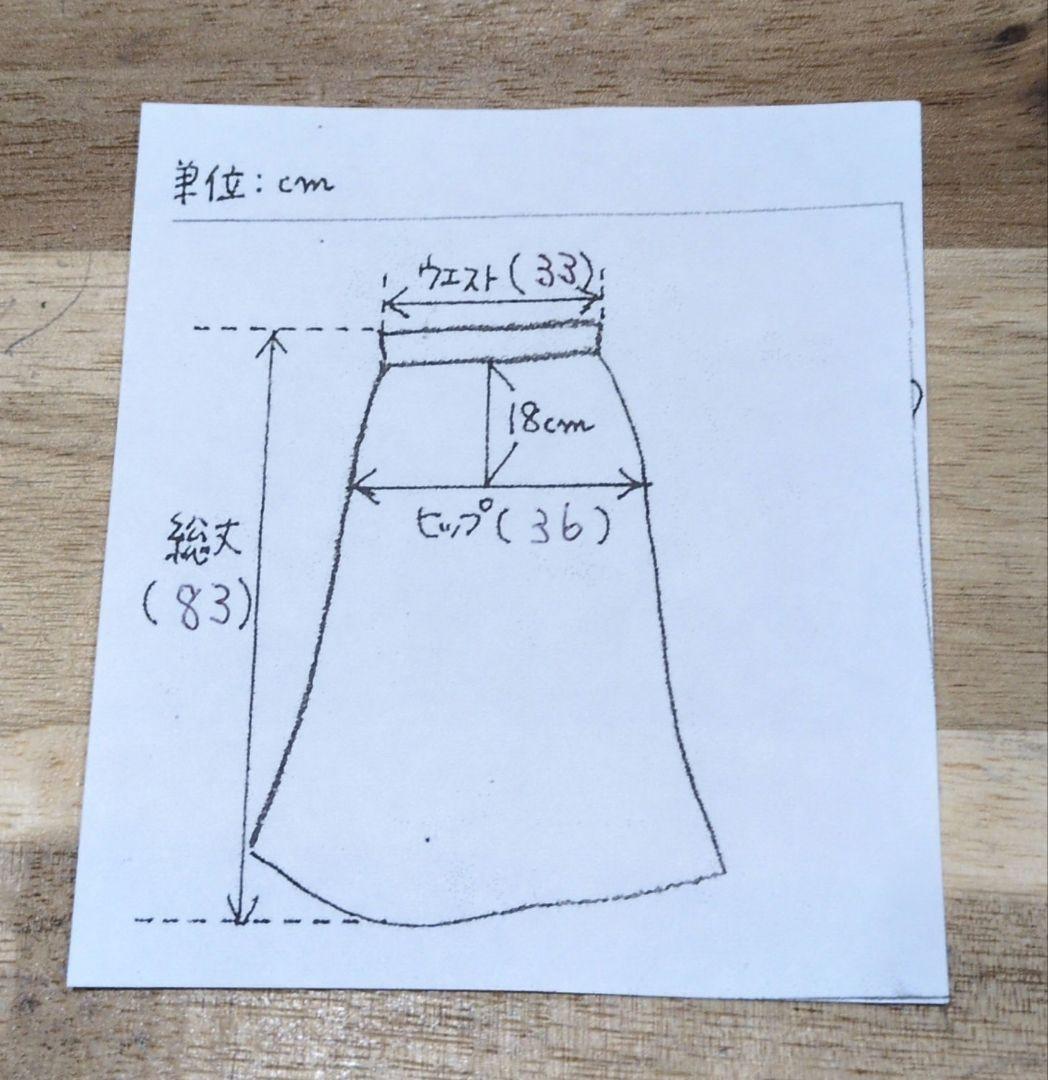 単位：cm
ウエスト(33)
18cm
ヒップ(36)
総丈
(83)